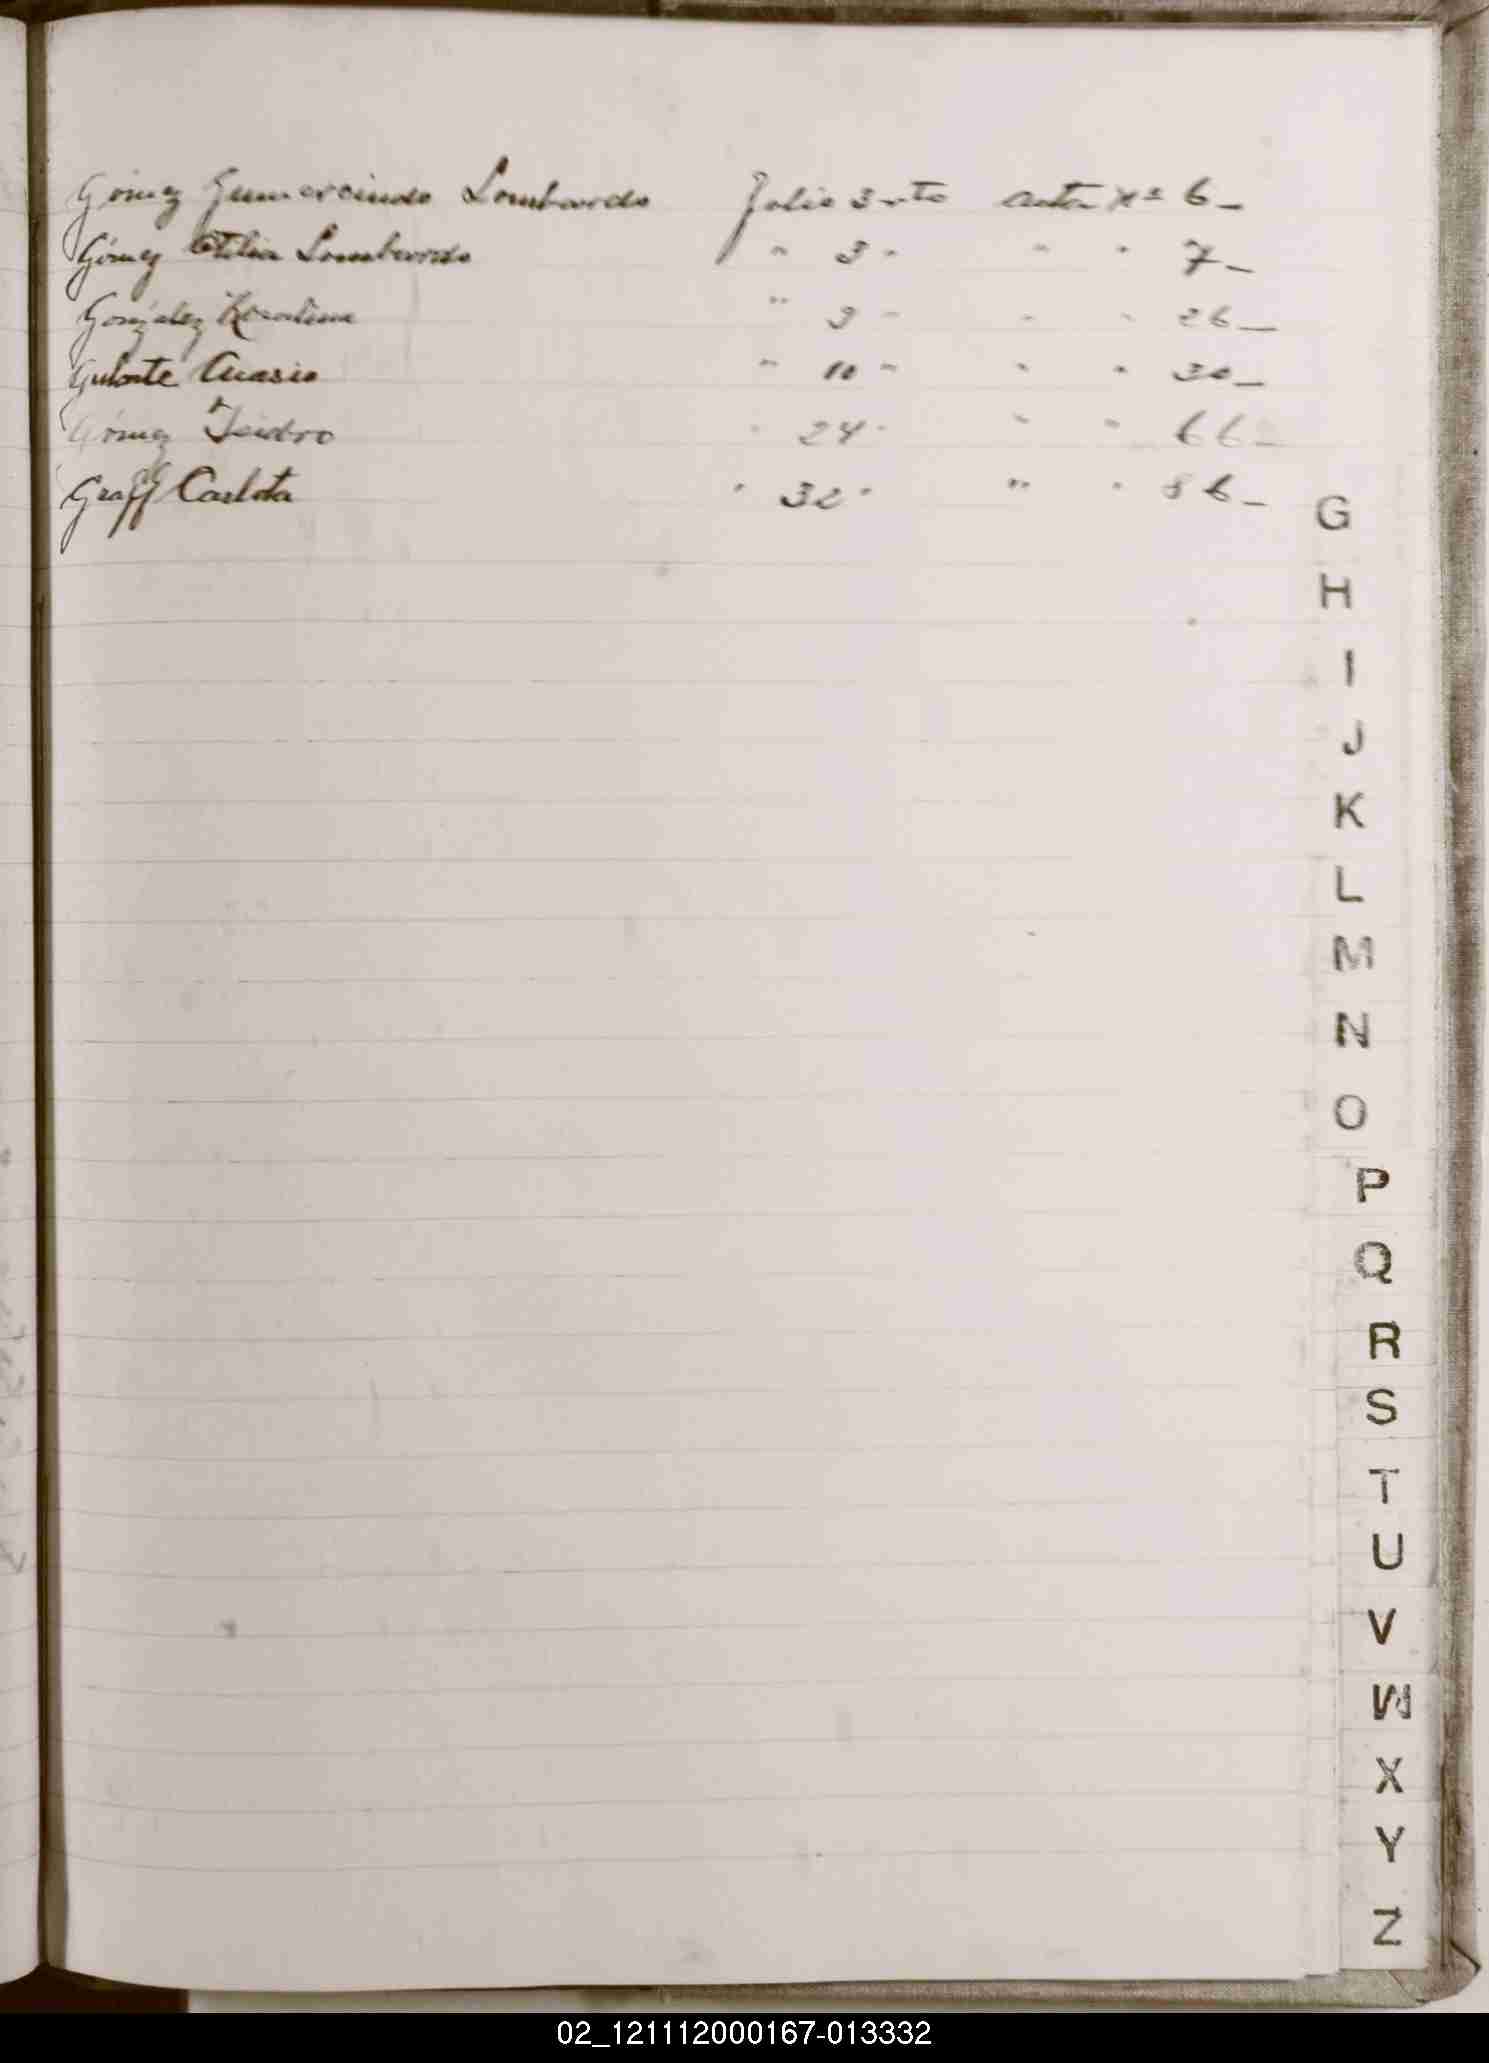 Gómez Gumercindo Lombardo Folio 3 vto acta Nº 6_
Gómez Otilia Lombardo " 3 " " " 7_
González " " " " 26_
Gularte Acasio " 10 " " " 30_
Gómez Isidro " 24 " " " 66_
Graff Carlota " 32 " " " 86_
G
H
I
J
K
L
M
N
O
P
Q
R
S
T
U
V
W
X
Y
Z
02_121112000167-013332